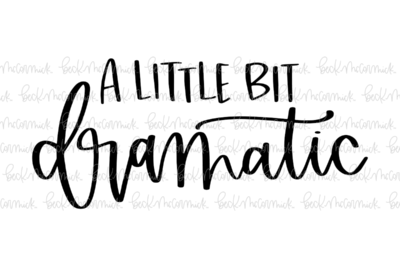 A LITTLE BIT
dramatic